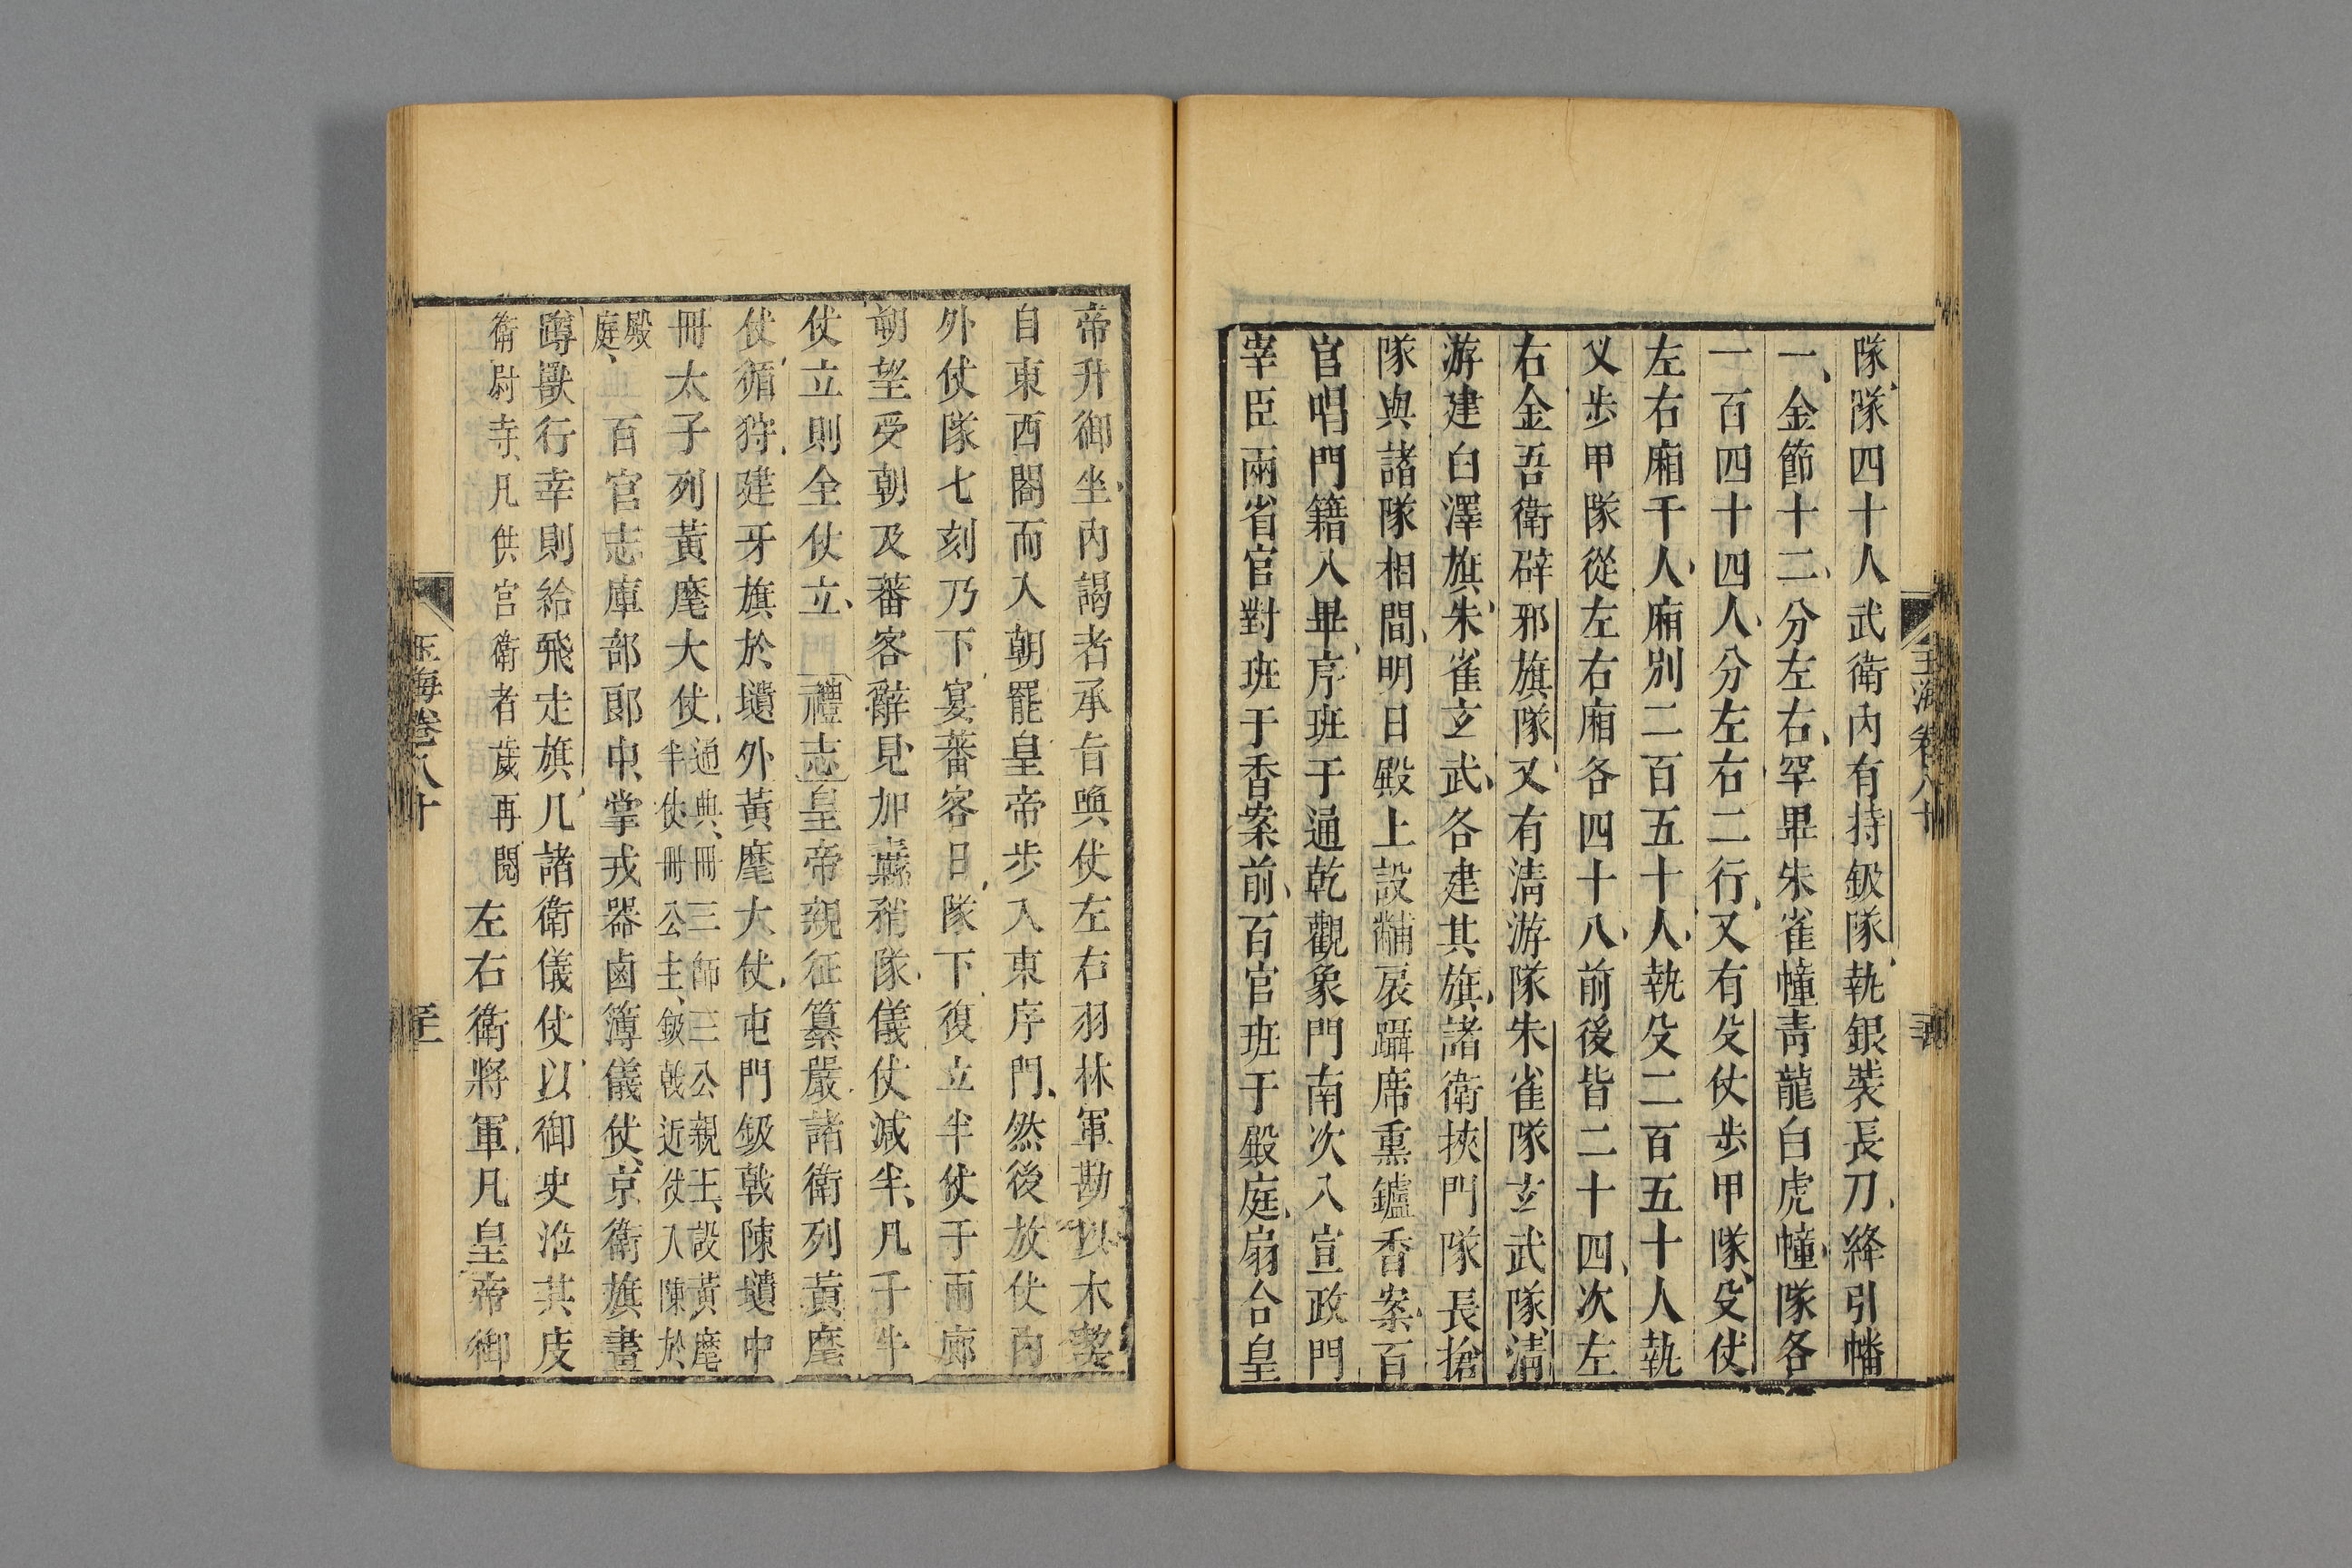 隊隊四十人武衛內有持鈒隊執銀裝長刀絳引幡
一金節十二分左右罕畢朱雀幢靑龍白虎幢隊各
一百四十四人分左右二行又有殳仗步甲隊殳仗
左右廂千人廂別二百五十人執殳二百五十人執
又步甲隊從左右廂各四十八前後皆二十四次左
右金吾衛辟邪旗隊又有淸游隊朱雀隊玄武隊淸
游建白澤旗朱雀玄武各建其旗諸衛挾門隊長搶
隊與諸隊相間明日殿上設黼扆躡席熏鑪香案百
官唱門籍入畢序班于通乾觀象門南次入宣政門
宰臣兩省官對班于香案前百官班于殿庭扇合皇
玉海卷八十
帝升御坐內謁者承旨喚仗左右羽林軍勘以木契
自東西閤而入朝罷皇帝步入東序門然後放仗內
外仗隊七刻乃下宴蕃客日隊下復立半仗于兩廊
朔望受朝及蕃客辭見加纛矟隊儀仗減半凡千牛
仗立則全仗立禮志皇帝親征纂嚴諸衛列黃麾
仗循狩建牙旗於壝外黃麾大仗屯門鈒戟陳壝中
冊太子列黃麾大仗通典冊三師三公親王設黃麾半仗冊公主鈒戟近仗入陳於
殿庭百官志庫部郞中掌戎器鹵簿儀仗京衛旗畫
蹲獸行幸則給飛走旗凡諸衛儀仗以御史涖其庋
衛尉寺凡供宮衛者歲再閱左右衛將軍凡皇帝御
玉海卷八十